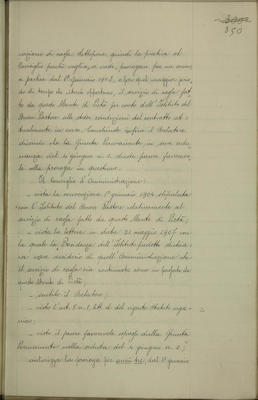 350
vizio di cassa dettopone, quindi la pratica al
Consiglio perchè voglia, se crede, prorogare per un anno
a partire dal 1º gennaio 1908, o per quel maggior perio-
do di tempo che riterrà opportuno, il servizio di cassa fat-
to da questo Monte di Pietà per conto dell'Istituto del
Buon Pastore alle stesse condizioni del contratto at-
tualmente in corso. Conchiude infine il Relatore
dicendo che la Giunta Permanente in sua adu-
nanza del 4 giugno u. s. diede parere favorevo-
le alla proroga in questione.
Il Consiglio d'Amministrazione:
- vista la convenzione 1º gennaio 1904 stipulata
con l'Istituto del Buon Pastore relativamente al
servizio di cassa fatto da questo Monte di Pietà;
- vista la lettera in data 21 maggio 1907 con
la quale la Presidenza dell'Istituto predetto dichia-
ra essere desiderio di quell'Amministrazione che
il servizio di cassa sia continuato come in passato da
questo Monte di Pietà;
- sentito il Relatore;
- visto l'art. 5 n. 1, lett. d del vigente Statuto orga-
nico;
- visto il parere favorevole espresso dalla Giunta
Permanente nella seduta del 4 giugno u. s.;
autorizza la proroga per anni tre, dal 1º gennaio